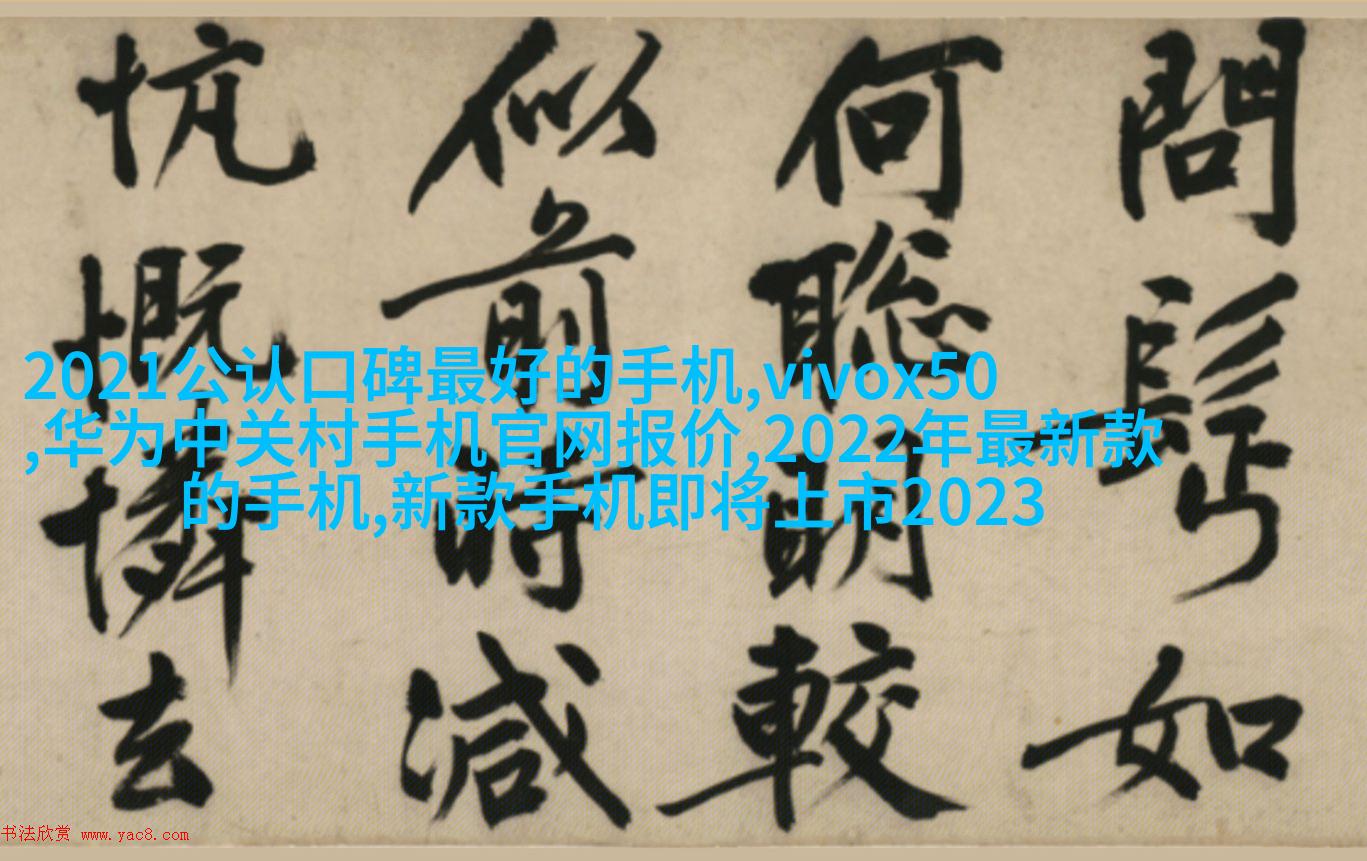 問如
何聰明較
似前時減
忼慨憐去
2021公认口碑最好的手机,vivox50
,华为中关村手机官网报价,2022年最新款
的手机,新款手机即将上市2023
书法欣赏 www.yac8.com